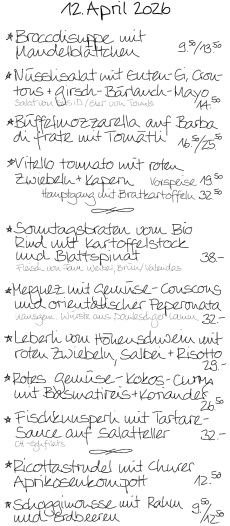 12. April 2026
* Broccolisuppe mit
Mandelblättchen 9.50/13.50
* Nüsslisalat mit Enten-Ei, Croû-
tons + Hirsch-Bärlauch-Mayo
Salat von / Eier von 14.50
* Büffelmozzarella auf Barba
di frate mit Tomätli 16.50/25.50
* Vitello tonnato mit roten
Zwiebeln + Kapern Vorspeise 19.50
Hauptgang mit Bratkartoffeln 32.50
* Sonntagsbraten vom Bio
Rind mit Kartoffelstock
und Blattspinat 38.-
Fleisch von Fam. Weibel,
* Merguez mit Gemüse-Couscous
und orientalischer Peperonata
Hausgem. Würste aus Lamm 32.-
* Leberli vom Höhenschwein mit
roten Zwiebeln, Salbei + Risotto
29.-
* Rotes Gemüse-Kokos-Curry
mit Basmatireis + Koriander
26.50
* Fischknusperli mit Tartare-
Sauce auf Salatteller 32.-
CH-Eglifilets
* Ricottastrudel mit Churer
Aprikosenkompott 12.50
* Schoggimousse mit Rahm
und Erdbeeren 9.50/12.50